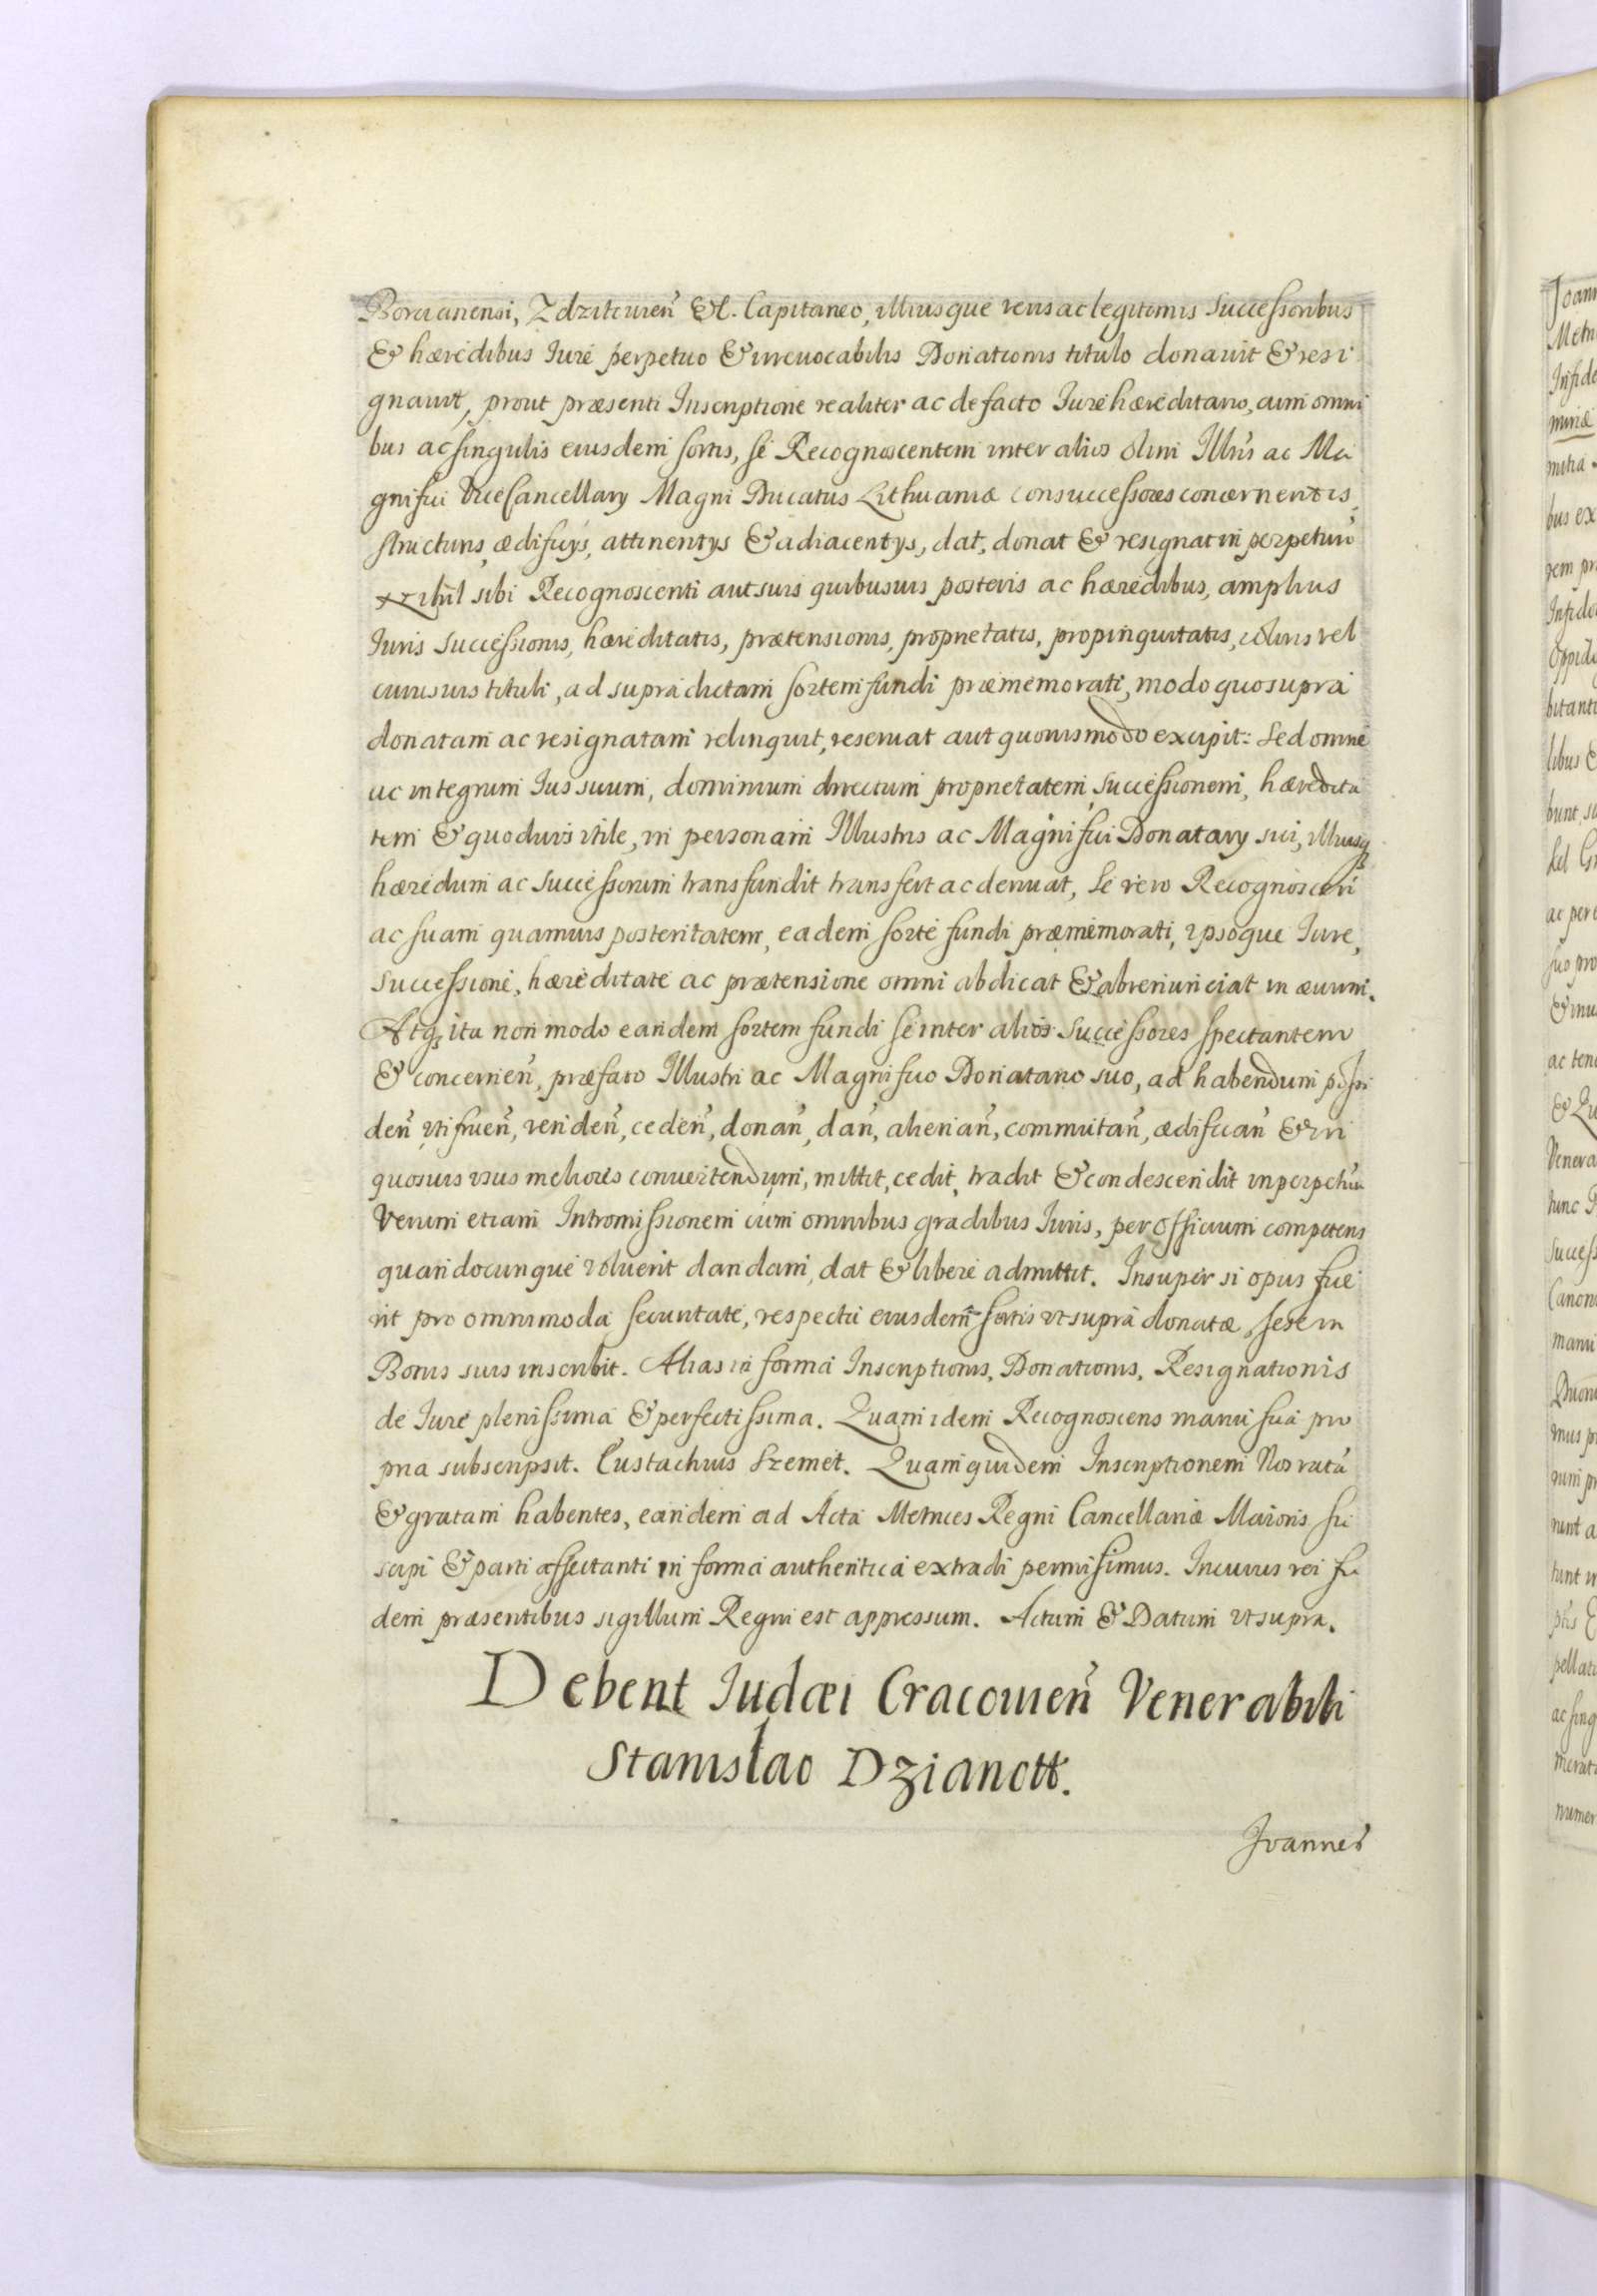 Borcianensi, Zdzitowień &c. Capitaneo, illiusque veris ac legitimis Successoribus
& hæredibus Iure perpetuo & irreuocabilis Donationis titulo donauit & resi
gnauit, prout præsenti Inscriptione realiter ac de facto Iure hæreditario, cum omni
bus ac singulis eiusdem sortis, se Recognoscentem inter alios olim Illris ac Ma
gnifici ViceCancellarij Magni Ducatus Lithuaniæ consuccessores concernentis,
structuris, ædificijs, attinentijs & adiacentijs, dat, donat & resignat in perpetuũ
Nihil sibi Recognoscenti aut suis quibusuis posteris ac hæredibus, amplius
Iuris Successionis, hæreditatis, prætensionis, proprietatis, propinquitatis, coloris vel
cuiusuis tituli, ad supradictam sortem fundi præmemorati, modo quo supra
donatam ac resignatam relinquit, reseruat aut quouismodo excipit: Sed omne
ac integrum Ius suum, dominium directum proprietatem, Successionem, hæredita
tem & quoduis vtile, in personam Illustris ac Magnifici Donatarij sui, illiusq̧
hæredum ac Successorum transfundit transfert ac deriuat, Se vero Recognoscen̄
ac suam quamuis posteritatem, eadem sorte fundi præmemorati, ipsoque Iure,
Successione, hæreditate ac prætensione omni abdicat & abrenunciat in æuum.
Atq̧ ita non modo eandem sortem fundi se inter alios Successores spectantem
& concerneñ, præfato Illustri ac Magnifico Donatario suo, ad habendum possi
deñ vtifrueñ, vendeñ, cedeñ, donañ, dañ, alienañ, commutañ, ædificañ & in
quosuis vsus meliores conuertendum, mittit, cedit, tradit & condescendit in perpetuũ
Verum etiam Intromissionem cum omnibus gradibus Iuris, per Officium competens
quandocunque voluerit dandam, dat & libere admittit. Insuper si opus fue
rit pro omnimoda securitate, respectu eiusdem sortis vt supra donatæ, sese in
Bonis suis inscribit. Alias in forma Inscriptionis, Donationis, Resignationis
de Iure plenissima & perfectissima. Quam idem Recognoscens manu sua pro
pria subscripsit. Eustachius Szemet. Quamquidem Inscriptionem Nos ratã
& gratam habentes, eandem ad Acta Metrices Regni Cancellariæ Maioris su
scipi & parti affectanti in forma authentica extradi permisimus. In cuius rei fi
dem præsentibus sigillum Regni est appressum. Actum & Datum vt supra.
Debent Iudæi Cracouieñ Venerabili
Stanislao Dzianott.
Ioannes